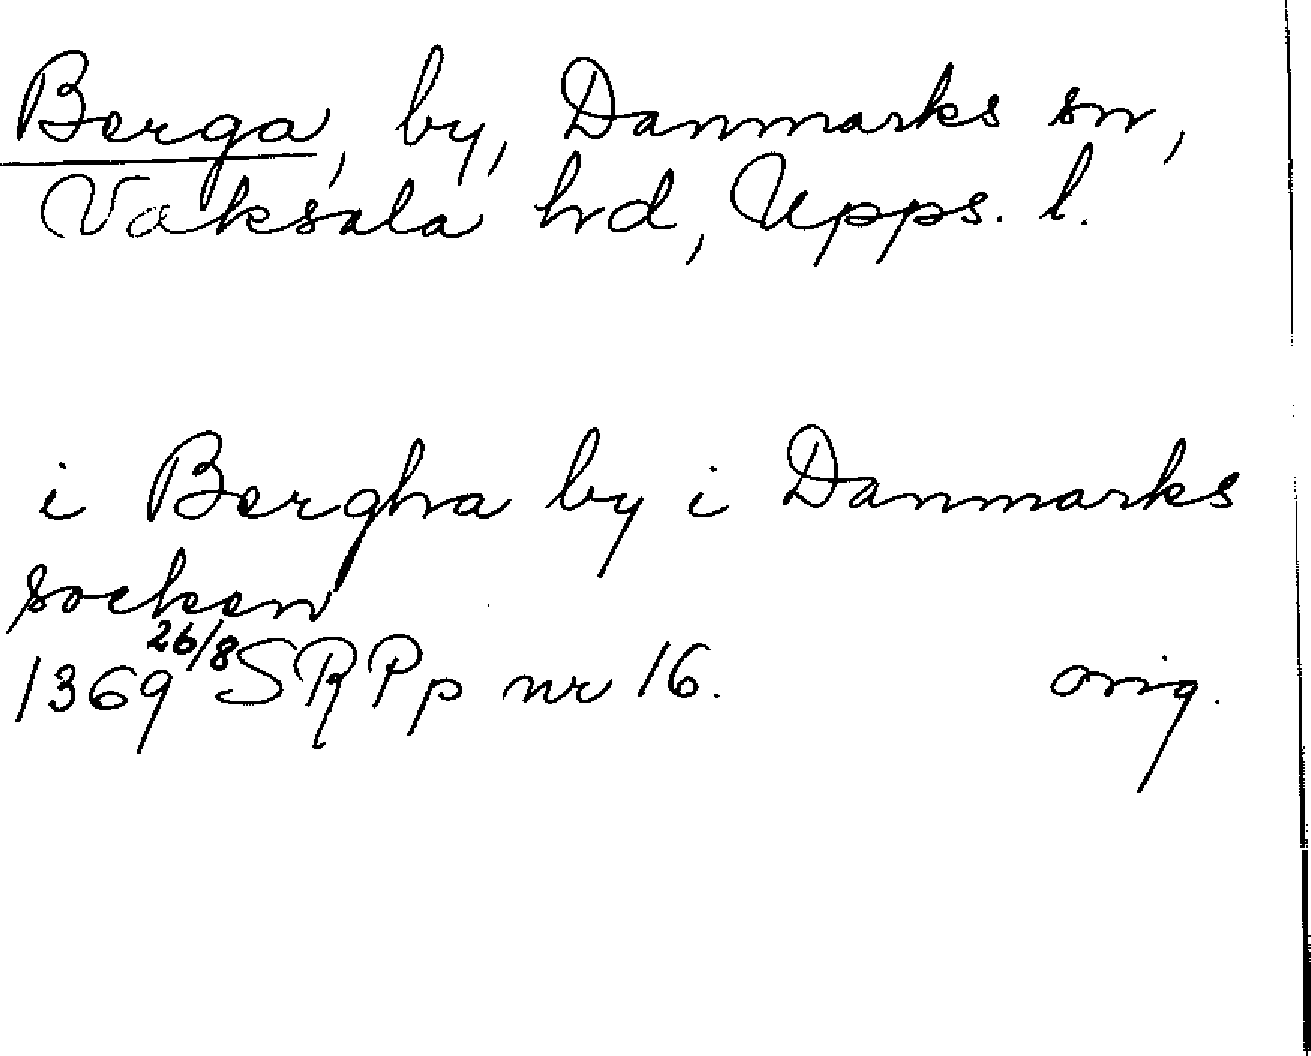 Berga, by, Danmarks sn,
Vaksala hd, Upps. l.
i Bergha by i Danmarks
socken
1369 26/8 SRPp nr 16. orig.